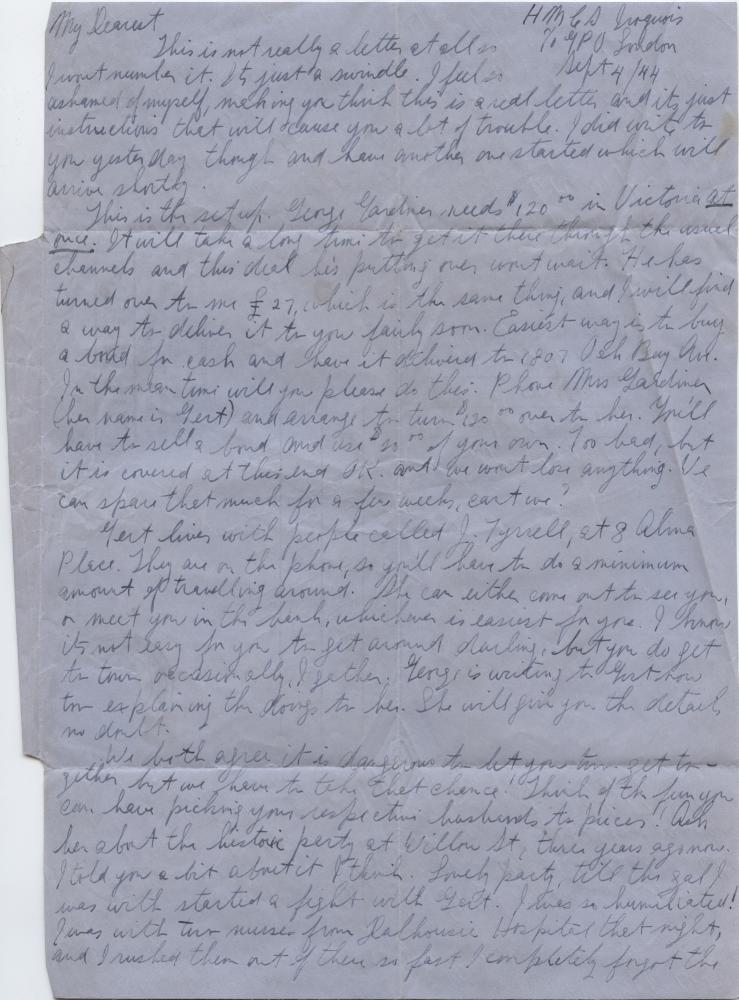 My Dearest
H M C S Iroquois
To G P O London
Sept 4/44
This is not really a letter at all so
I wont number it. Its just a swindle. I feel so
ashamed of myself, making you think this is a real letter and its just
instructions that will cause you a lot of trouble. I did write to
you yesterday though and have another one started which will
arrive shortly.
This is the setup. George Gardiner needs $120.00 in Victoria at
once. It will take a long time to get it there through the usual
channels and this deal he's putting over wont wait. He has
turned over to me £27, which is the same thing, and I will find
a way to deliver it to you fairly soon. Easiest way is to buy
a bond for cash and have it delivered to 1807 Oak Bay Ave.
In the mean time will you please do this. Phone Mrs Gardiner
(her name is Gert) and arrange to turn $120.00 over to her. You'll
have to sell a bond and use $20.00 of your own. Too bad, but
it is covered at this end OK. and we wont lose anything. We
can spare that much for a few weeks, cant we?
Gert lives with people called J. Tyrrell, at 8 Alma
Place. They are on the phone, so you'll have to do a minimum
amount of travelling around. She can either come out to see you,
or meet you in the bank, whichever is easiest for you. I know
its not easy for you to get around darling, but you do get
to town occasionally, I gather. George is writing to Gert now
too explaining the doings to her. She will give you the details
no doubt.
We both agree it is dangerous to let you two get to-
gether but we have to take that chance. Think of the fun you
can have picking your respective husbands to pieces! Ask
her about the historic party at Willow St, three years ago now.
I told you a bit about it I think. Lovely party, till the gal I
was with started a fight with Gert. I was so humiliated!
I was with two nurses from Dalhousie Hospital that night,
and I rushed them out of there so fast I completely forgot the